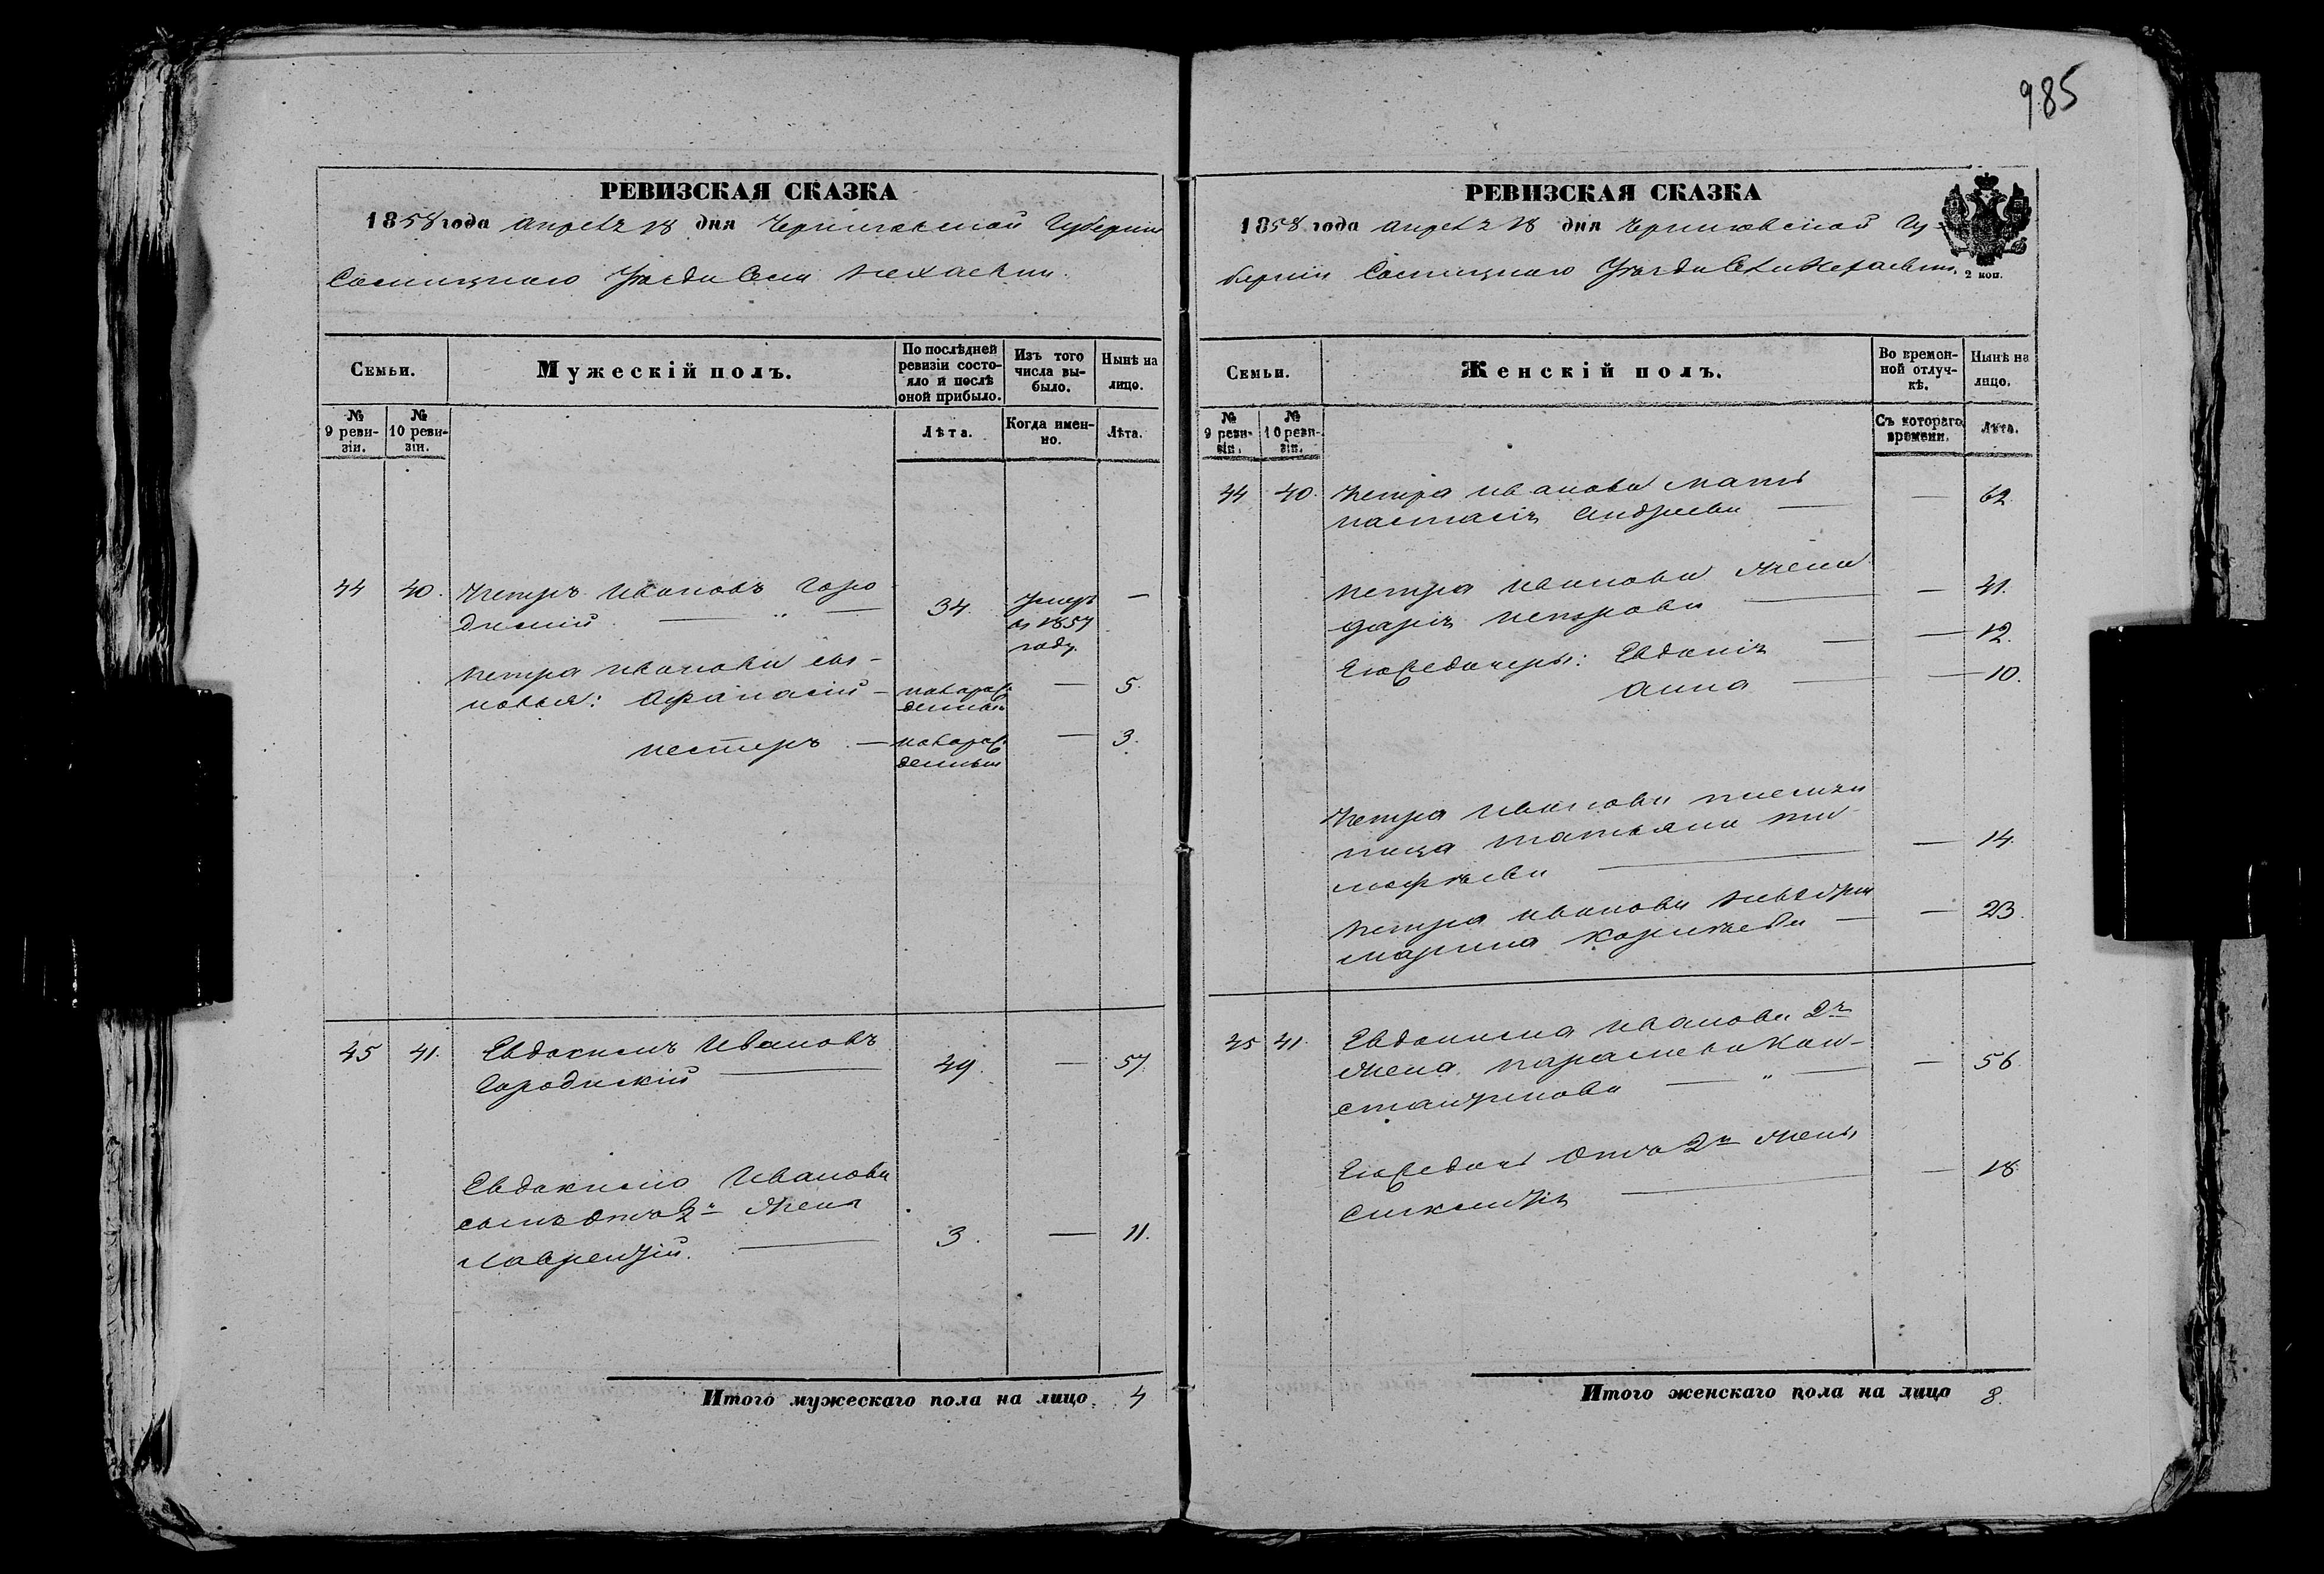 985
РЕВИЗСКАЯ СКАЗКА
1858 года апреля 18 дня Черниговской Губернии
Сосницкаго Уѣзда Села Нехаевки.
Семьи.
Мужескій полъ.
По послѣдней ревизіи состояло и послѣ оной прибыло.
Изъ того числа выбыло.
Нынѣ на лицо.
№ 9 ревизіи.
№ 10 ревизіи.
Лѣта.
Когда именно.
Лѣта.
44 40. Петръ Ивановъ Горо
диский — " — 34. Умеръ въ 1857 году. —
Петра Иванова сы-
новья: Афанасій — новорожденный — 5.
Нестеръ — новорожденный — 3.
45 41. Евдокимъ Ивановъ
Городискій — 49. — 57.
Евдокима Иванова
сынъ отъ 2й жены
Лаврентій. — 3. — 11.
Итого мужескаго пола на лицо. 4
РЕВИЗСКАЯ СКАЗКА
1858 года апреля 18 дня Черниговской Гу-
берніи Сосницкаго Уѣзда Села Нехаевки.
2 коп.
Семьи.
Женскій полъ.
Во временной отлучкѣ.
Нынѣ на лицо.
№ 9 ревизіи.
№ 10 ревизіи.
Съ котораго времени.
Лѣта.
44 40. Петра Иванова мать
Настасія Андреева — — 62
Петра Иванова жена
Дарія Петрова — — 41.
Его же дочеры: Евдокія — — 12.
Анна — — 10.
Петра Иванова племян
ница Татьяна Ти-
мофѣева — — 14.
Петра Иванова невѣстка
Марина Корнѣева — — 23.
45 41. Евдокима Иванова 2я
жена Параскева Кон-
стантинова — " — — 56.
Его же дочь отъ 2й жены
— — 18.
Итого женскаго пола на лицо 8.